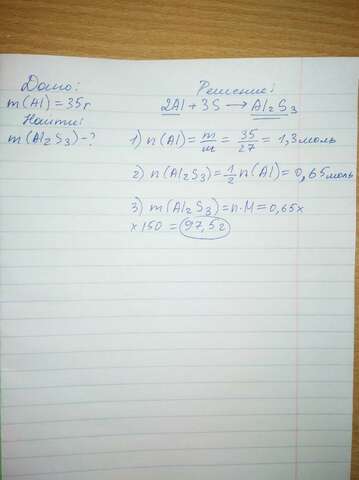 Дано:
m(Al)=35г
Найти:
m(Al₂S₃)-?
Решение:
2Al+3S→Al₂S₃
1) n(Al)=m/m=35/27=1,3моль
2) n(Al₂S₃)=1/2n(Al)=0,65моль
3) m(Al₂S₃)=n·M=0,65×
×150=97,5г